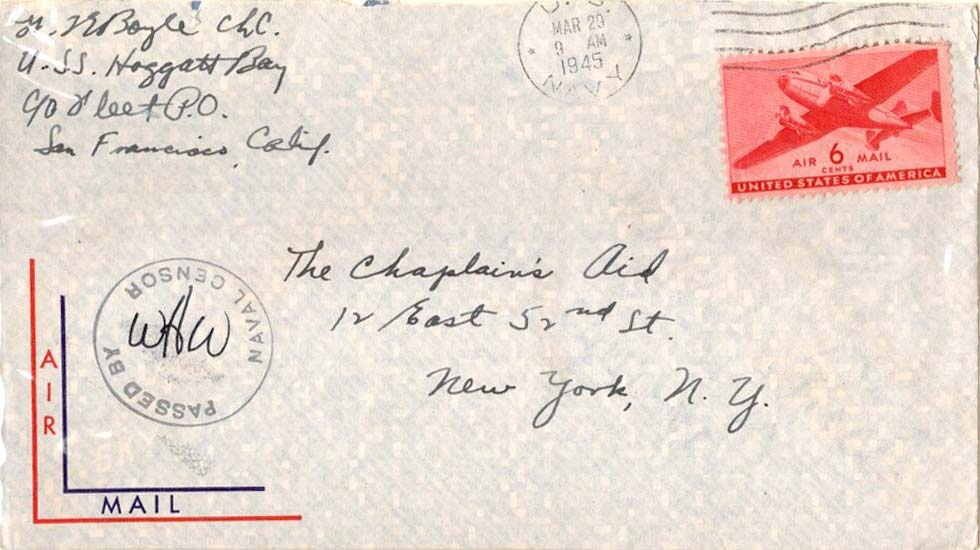 Boyle Ch.C.
U.S.S. Hoggatt Bay
c/o Fleet P.O.
San Francisco, Calif.
U. S.
MAR 29
9 AM
1945
NAVY
AIR 6 MAIL
CENTS
UNITED STATES OF AMERICA
The Chaplain's Aid
12 East 52nd St.
New York, N. Y.
PASSED BY
NAVAL CENSOR
WHW
AIR
MAIL